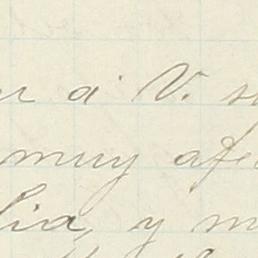 á V.
muy afe
lia, y m